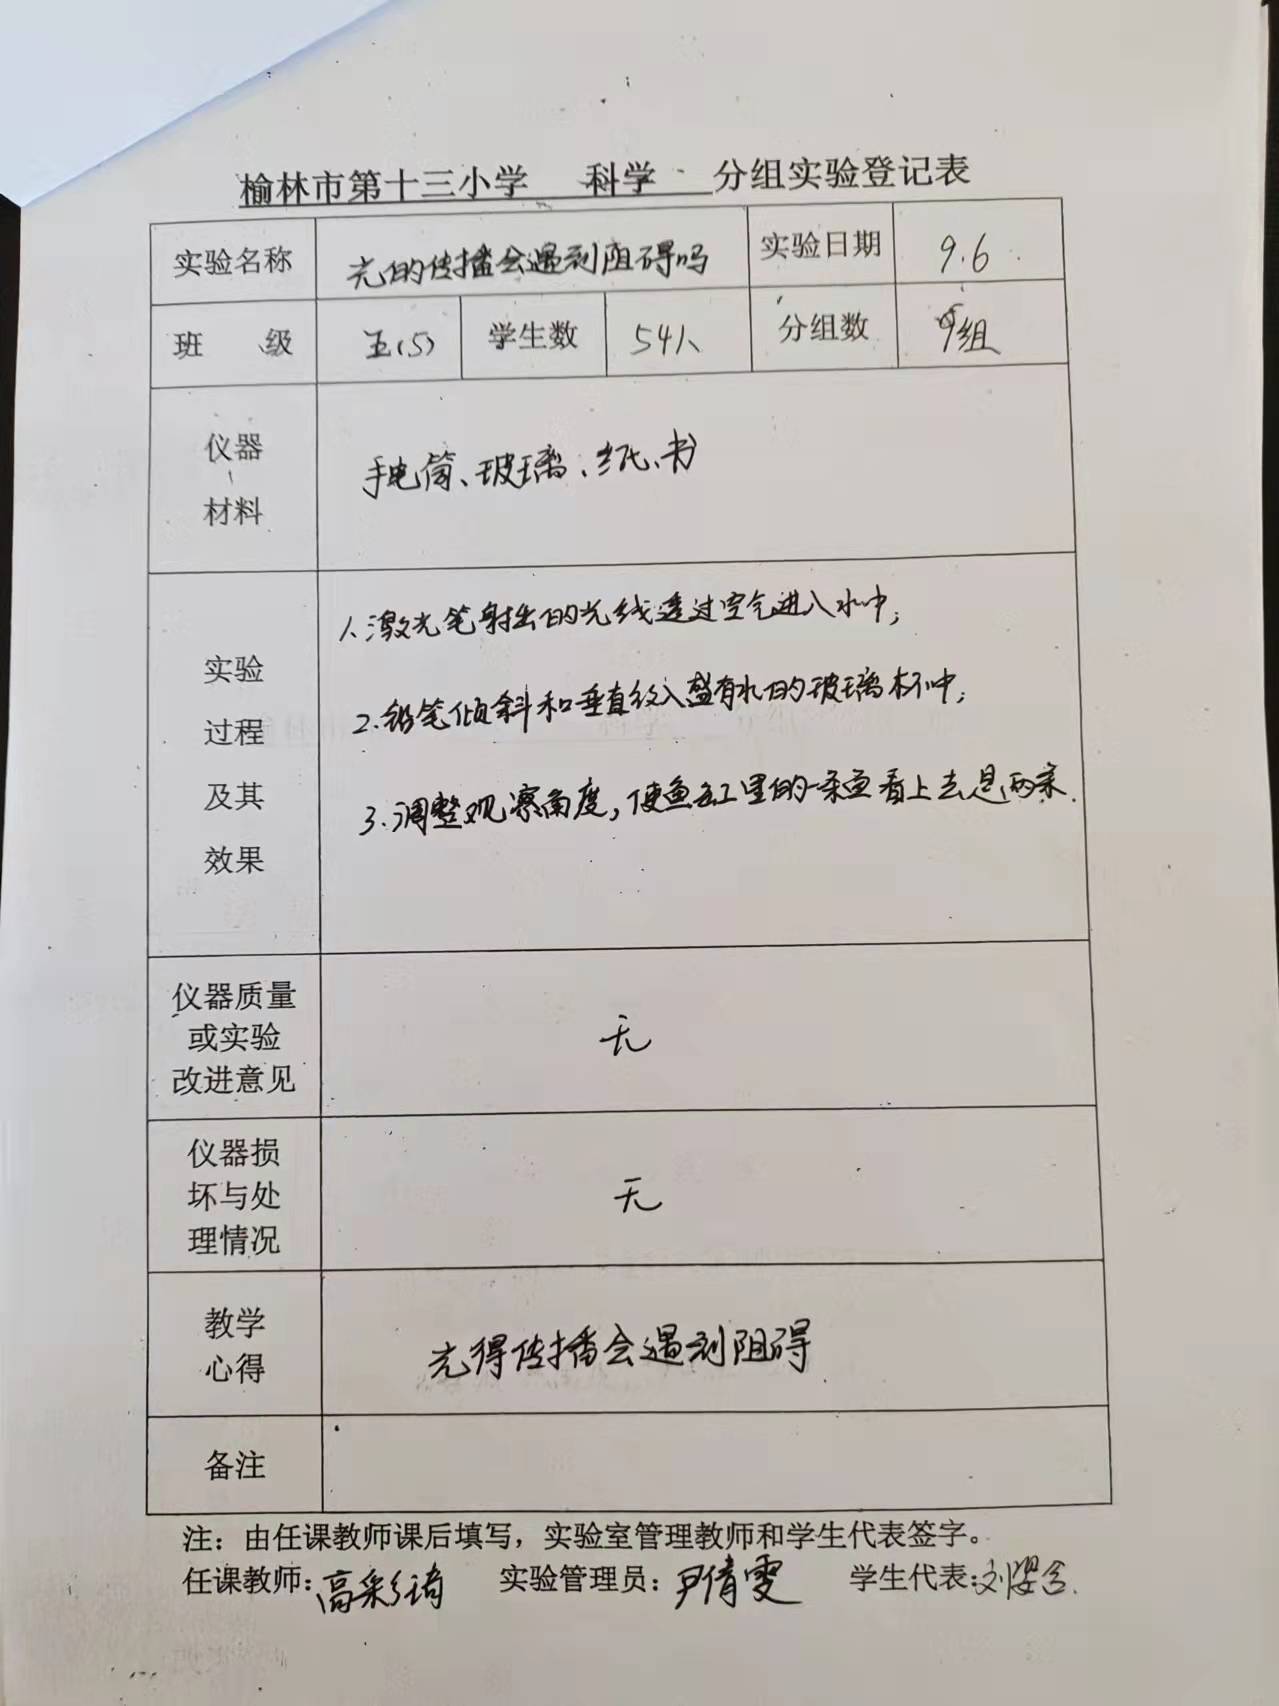 榆林市第十三小学 科学 分组实验登记表
实验名称 光的传播会遇到阻碍吗 实验日期 9.6
班 级 五(5) 学生数 54人 分组数 9组
仪器
材料
手电筒、玻璃、纸、书
实验
过程
及其
效果
1.激光笔射出的光线透过空气进入水中;
2.铅笔倾斜和垂直放入盛有水的玻璃杯中;
3.调整观察角度,使鱼缸里的一条鱼看上去是两条.
仪器质量
或实验
改进意见
无
仪器损
坏与处
理情况
无
教学
心得
光得传播会遇到阻碍
备注
注：由任课教师课后填写，实验室管理教师和学生代表签字。
任课教师：高彩琦 实验管理员：尹倩雯 学生代表：刘